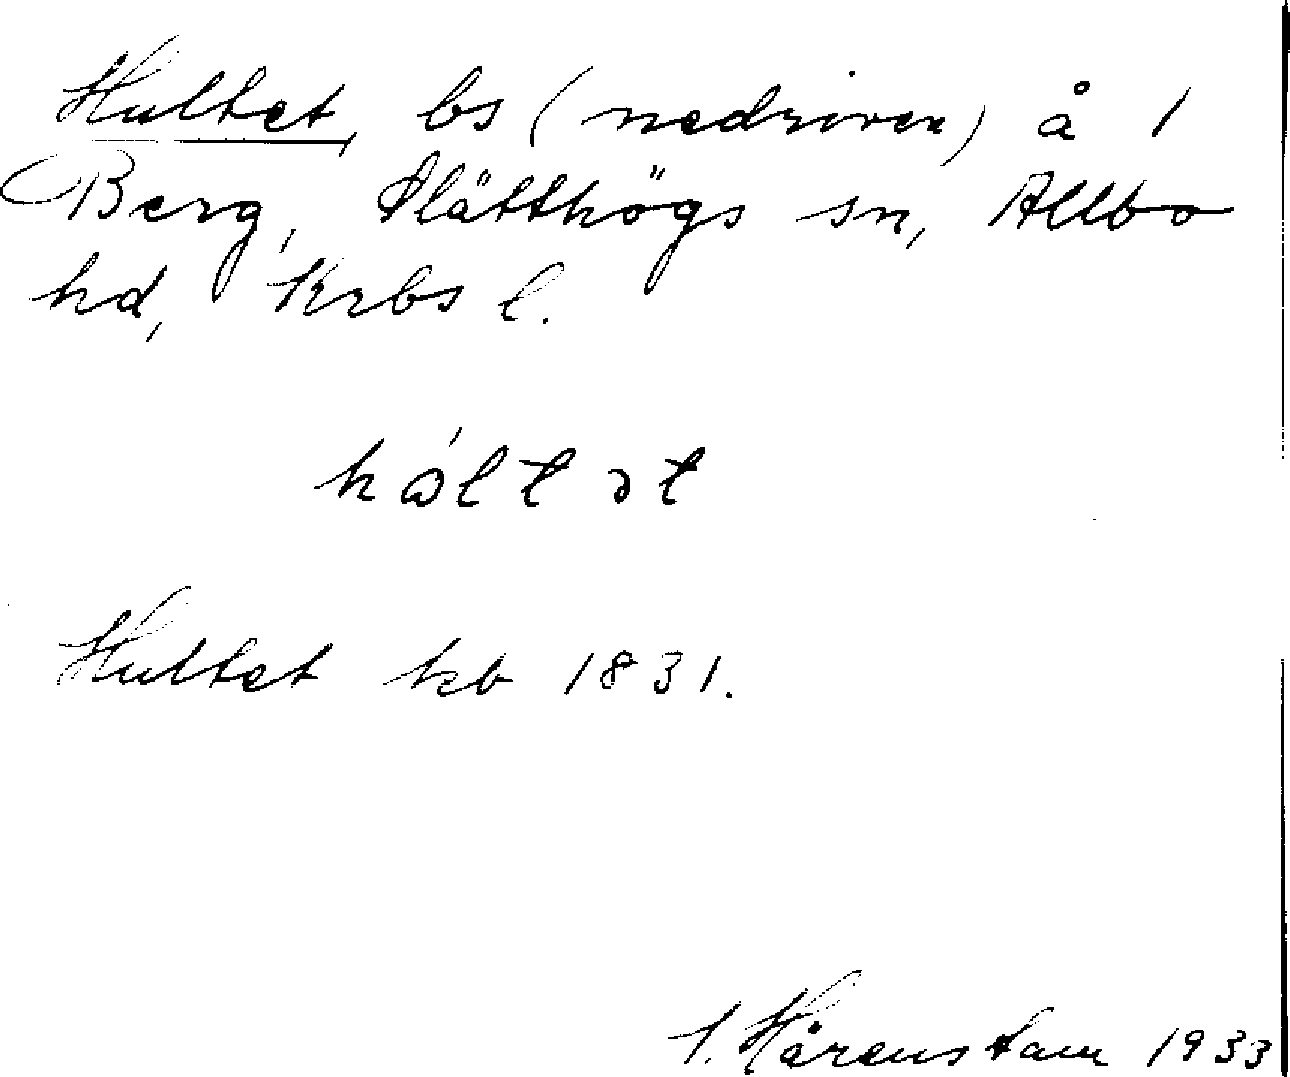 Hultet, bs (nedriven) å 1
Berg, Slätthögs sn, Allbo
hd, Krbs l.
hɷ́ltət
Hultet kb 1831.
I. Hårenstam 1933